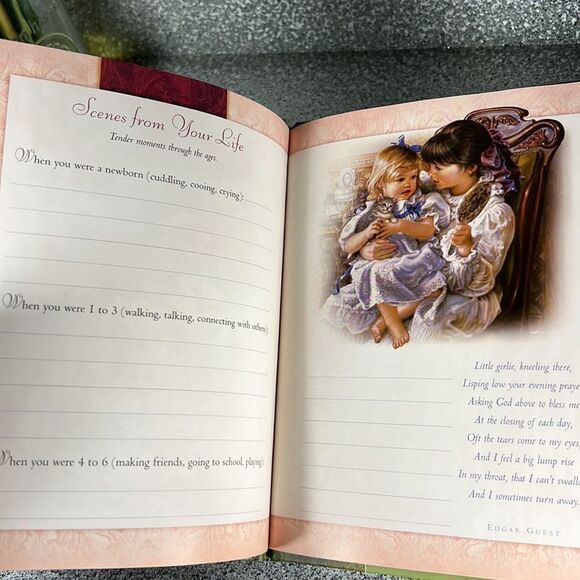 Scenes from Your Life
Tender moments through the ages.
When you were a newborn (cuddling, cooing, crying):
When you were 1 to 3 (walking, talking, connecting with others):
When you were 4 to 6 (making friends, going to school, playing):
Little girlie, kneeling there,
Lisping low your evening praye
Asking God above to bless me
At the closing of each day,
Oft the tears come to my eyes,
And I feel a big lump rise
In my throat, that I can't swallo
And I sometimes turn away.
EDGAR GUEST